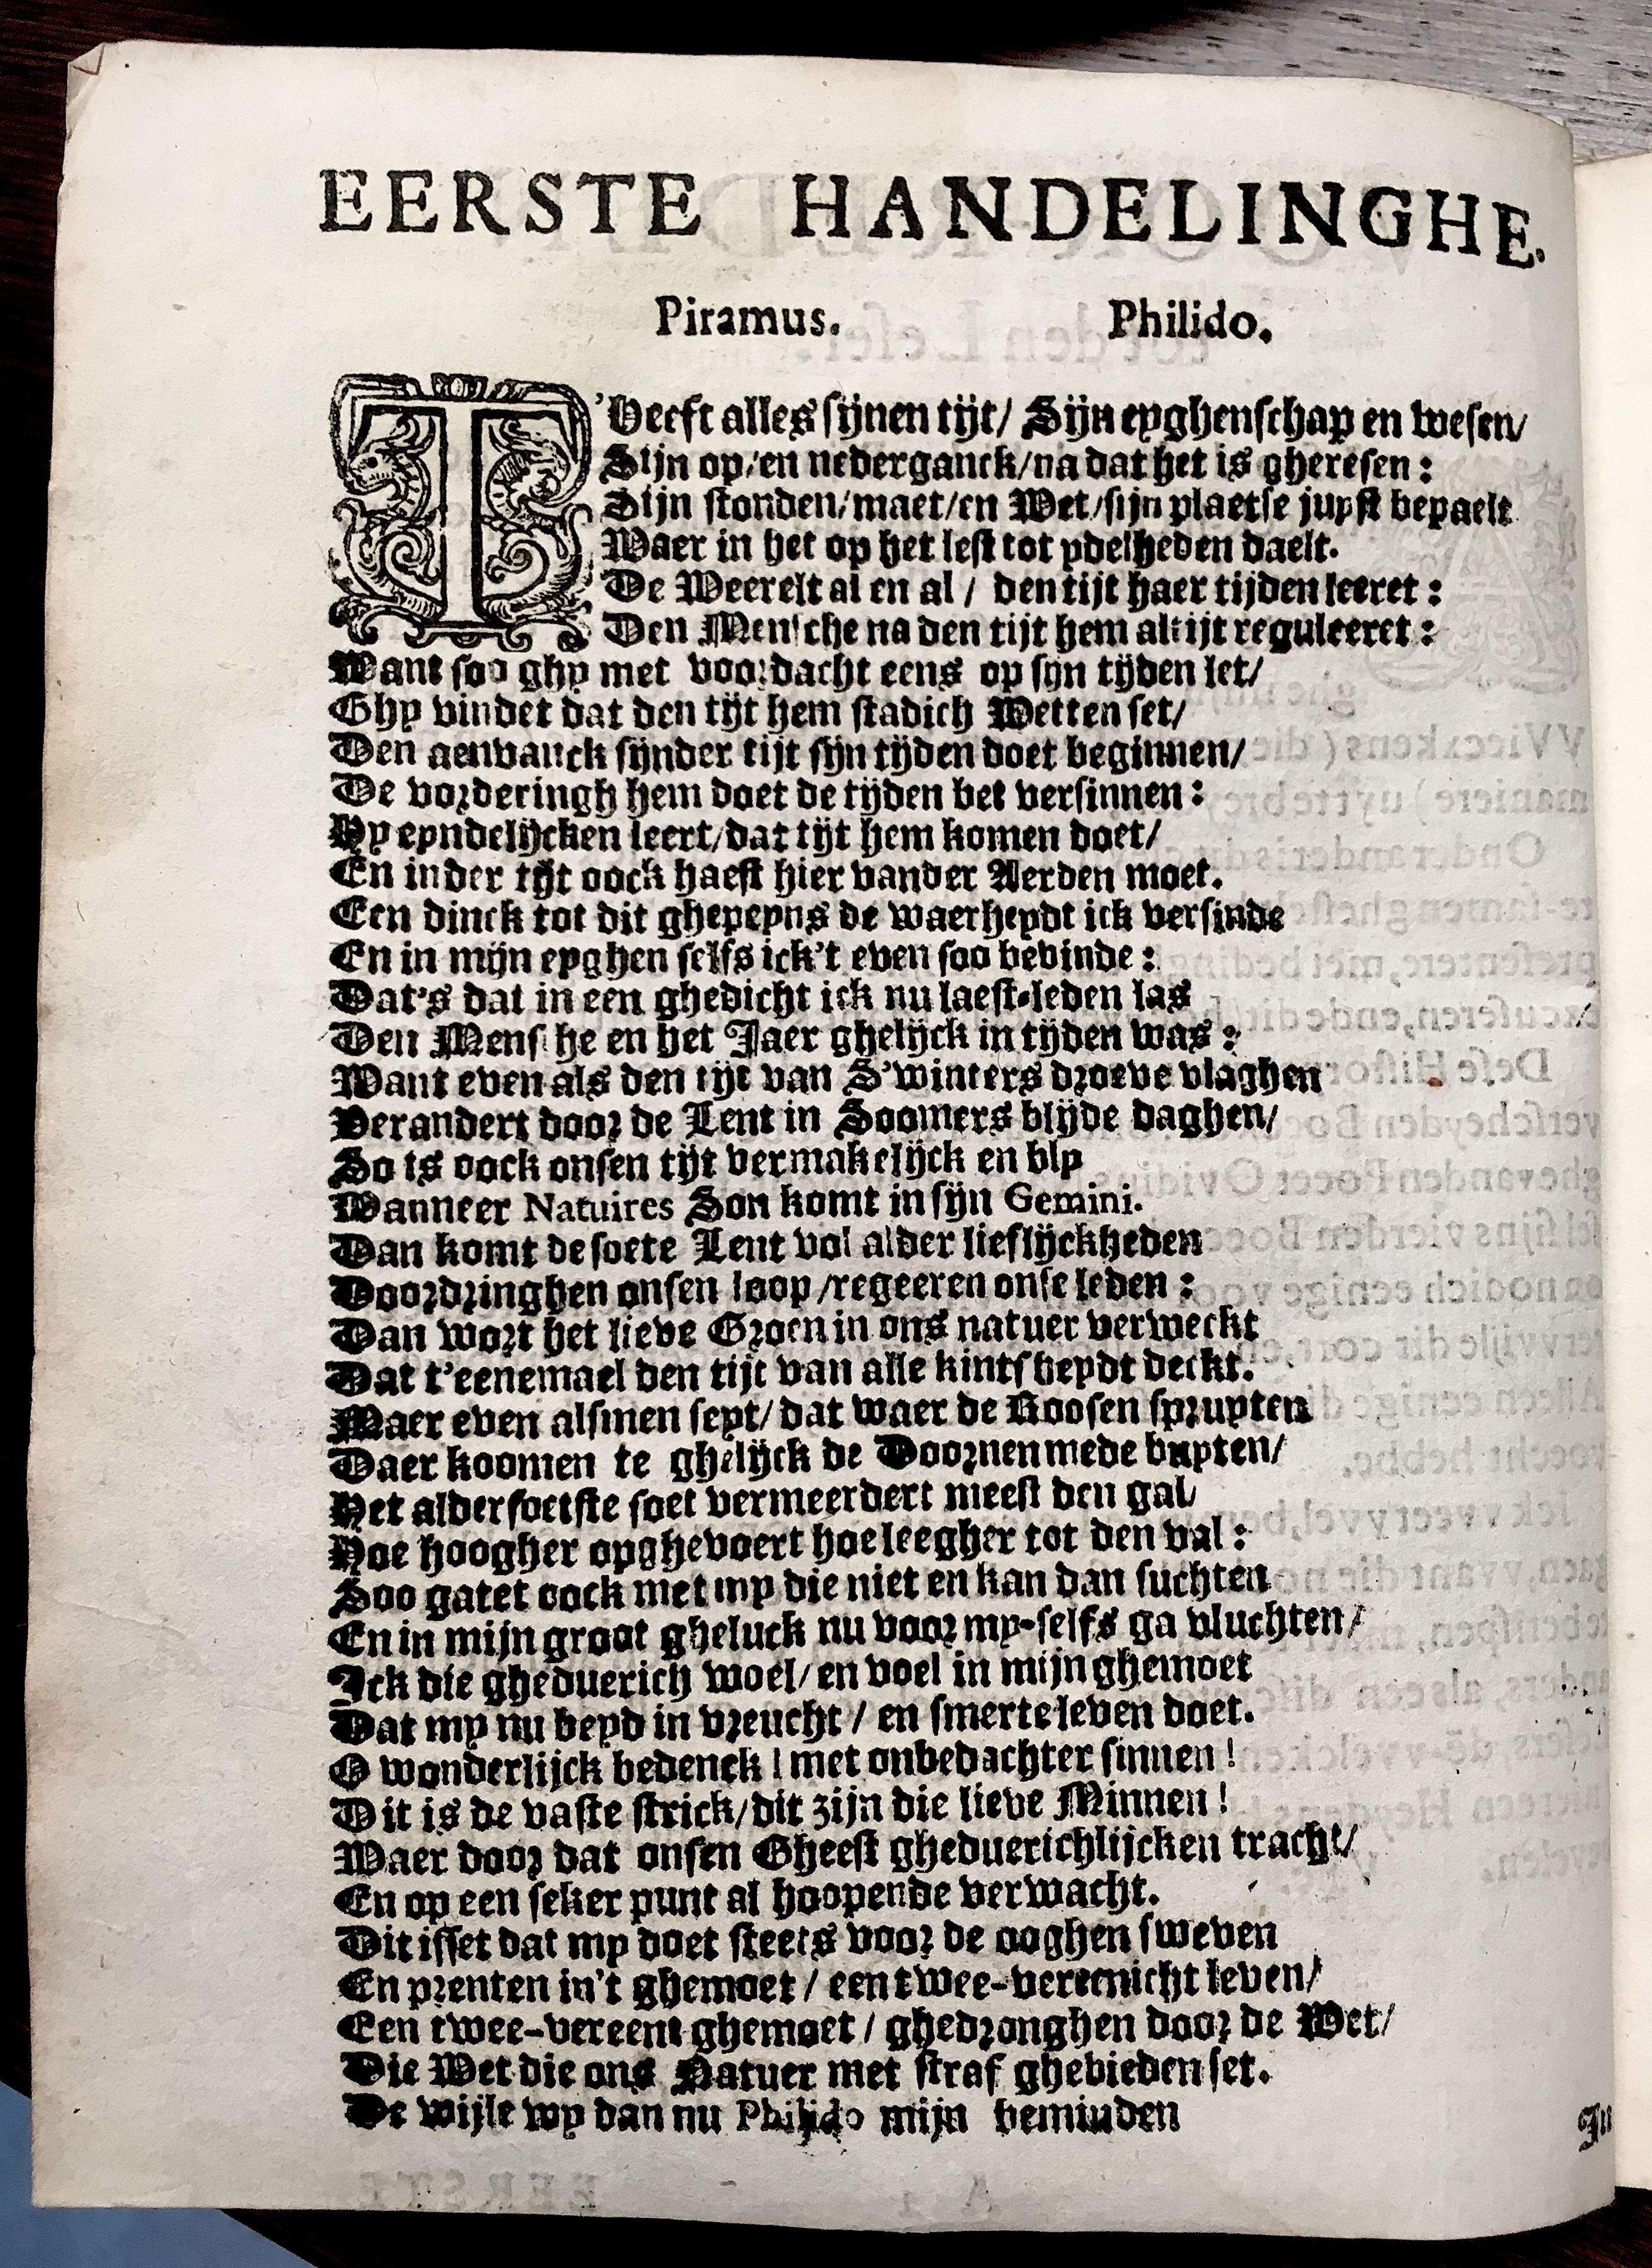 EERSTE HANDELINGHE.
Piramus. Philido.
T'Heeft alles sijnen tijt/ Sijn eyghenschap en wesen/
Sijn op/en nederganck/na dat het is gheresen:
Sijn stonden/maet/en Wet/sijn plaetse juyst bepaelt
Waer in het op het lest tot ydelheden daelt.
De Weerelt al en al/ den tijt haer tijden leeret:
Den Mensche na den tijt hem altijt reguleeret:
Want soo ghy met voordacht eens op sijn tijden let/
Ghy vindet dat den tijt hem stadich Wetten set/
Den aenvanck sijnder tijt sijn tijden doet beginnen/
De vorderingh hem doet de tijden bet versinnen:
Hy eyndelijcken leert/dat tijt hem komen doet/
En inder tijt oock haest hier vander Aerden moet.
Een dinck tot dit ghepeyns de waerheydt ick versinde
En in mijn eyghen selfs ick't even soo bevinde:
Dat's dat in een ghedicht ick nu laest-leden las
Den Mensche en het Jaer ghelijck in tijden was:
Want even als den tijt van S'winters droeve vlaghen
Verandert door de Lent in Soomers blijde daghen/
So is oock onsen tijt vermakelijck en bly
Wanneer Natuires Son komt in sijn Gemini.
Dan komt de soete Lent vol alder lieflijckheden
Doordringhen onsen loop/regeeren onse leden:
Dan wort het lieve Groen in ons natuer verweckt
Dat t'eenemael den tijt van alle kintsheydt deckt.
Maer even alsmen seyt/ dat waer de Roosen spruyten
Daer koomen te ghelijck de Doornen mede buyten/
Het aldersoetste soet vermeerdert meest den gal/
Hoe hoogher opghevoert hoe leegher tot den val:
Soo gatet oock met my die niet en kan dan suchten
En in mijn groot gheluck nu voor my-selfs ga vluchten/
Ick die gheduerich woel/ en voel in mijn ghemoet
Dat my nu beyd in vreucht/ en smerte leven doet.
O wonderlijck bedenck! met onbedachter sinnen!
Dit is de vaste strick/dit zijn die lieve Minnen!
Waer door dat onsen Gheest gheduerichlijcken tracht/
En op een seker punt al hoopende verwacht.
Dit isset dat my doet steets voor de ooghen sweven
En prenten in't ghemoet/ een twee-vereenicht leven/
Een twee-vereent ghemoet/ ghedronghen door de Wet/
Die Wet die ons Natuer met straf ghebieden set.
De wijle wy dan nu Philido mijn beminden